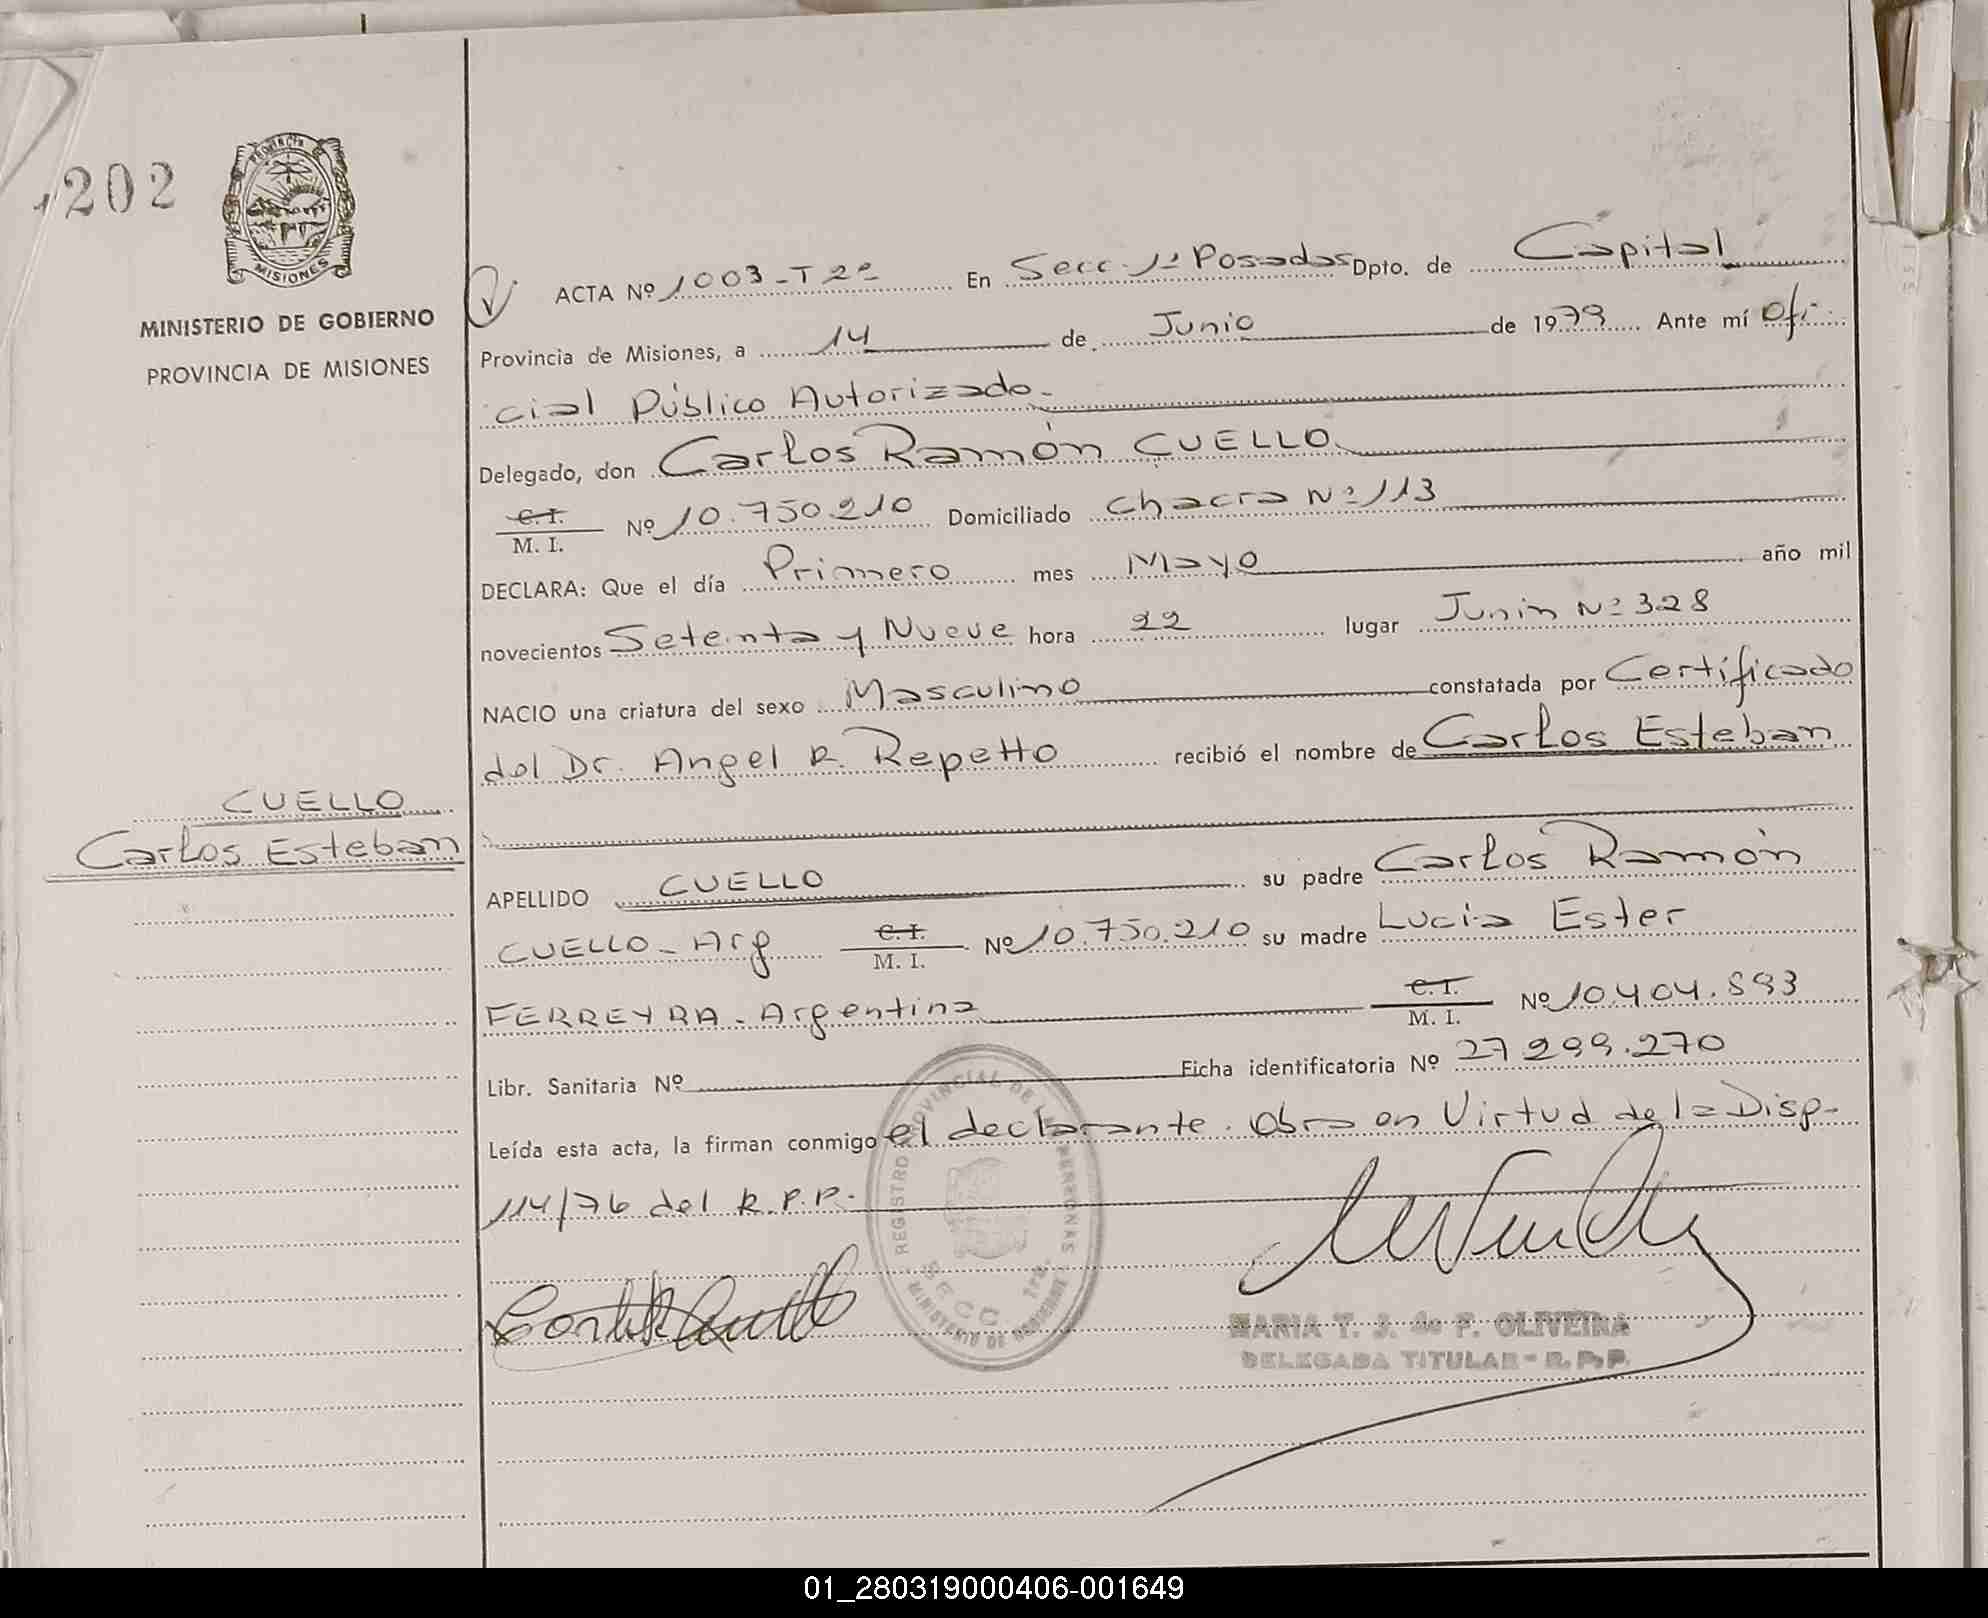 202
PROVINCIA DE
MISIONES
MINISTERIO DE GOBIERNO
PROVINCIA DE MISIONES
CUELLO
Carlos Esteban
ACTA Nº 1003-T2º En Secc. 1ª Posadas Dpto. de Capital
Provincia de Misiones, a 14 de Junio de 1979 Ante mí Ofi-
cial Público Autorizado.
Delegado, don Carlos Ramón CUELLO
C. I.
M. I. Nº 10.750.210 Domiciliado Chacra Nº 113
DECLARA: Que el día Primero mes Mayo año mil
novecientos Setenta y Nueve hora 22 lugar Junin Nº 328
NACIO una criatura del sexo Masculino constatada por Certificado
del Dr. Angel R. Repetto recibió el nombre de Carlos Esteban
APELLIDO CUELLO su padre Carlos Ramón
CUELLO - Arg C. I. M. I. Nº 10.750.210 su madre Lucia Ester
FERREYRA - Argentina C. I. M. I. Nº 10.404.893
Libr. Sanitaria Nº Ficha identificatoria Nº 27.299.270
Leída esta acta, la firman conmigo el declarante. Obra en Virtud de la Disp-
114/76 del R.P.P.-
REGISTRO PROVINCIAL DE LAS PERSONAS
SECC 1ra.
MINISTERIO DE GOBIERNO
MARIA T. J. de F. OLIVEIRA
DELEGADA TITULAR - R. P. P.
01_280319000406-001649